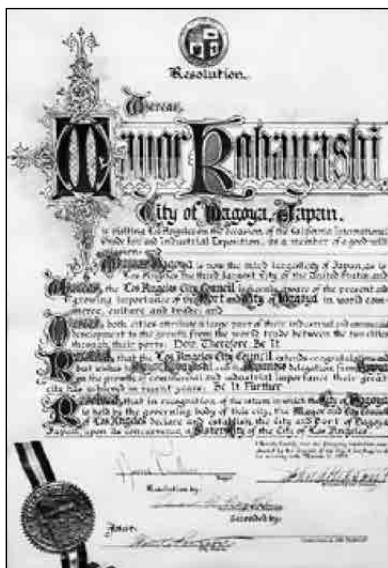 Resolution.
Whereas,
Mayor Kobayashi
City of Nagoya, Japan,
is visiting Los Angeles on the occasion of the California International
Trade Fair and Industrial Exposition, as a member of a good will
Whereas, Nagoya is now the third largest city of Japan, as is
Los Angeles the third largest City of the United States and
Whereas, the Los Angeles City Council is keenly aware of the present and
growing importance of the Port and City of Nagoya in world com-
merce, culture and trade; and
Whereas, both cities attribute a large part of their industrial and commercial
development to the growth from the world trade between the two cities
through their ports: Now, Therefore, Be It
Resolved, that the Los Angeles City Council extends congratulations and
best wishes to Mayor Kobayashi and the Japanese delegation from Nagoya
on the growth of commercial and industrial importance their great
city has achieved in recent years; Be It Further
Resolved, that in recognition of the esteem in which the City of Nagoya
is held by the governing body of this city, the Mayor and City Council
of Los Angeles declare and establish the City and Port of Nagoya,
Japan, upon its concurrence, a Sister City of the City of Los Angeles.
Resolution by:
Seconded by: